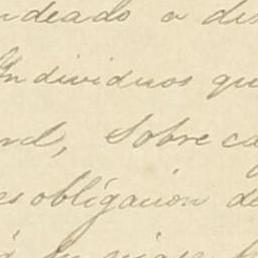 ndeado a dis
Individuos qu
rd, Sobre ca
es obligación de